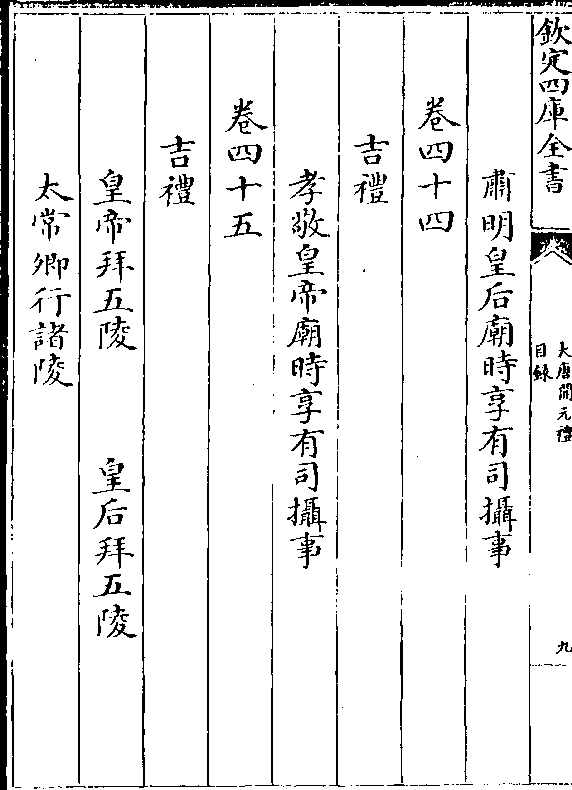 欽定四庫全書
大唐開元禮
目錄
九
肅明皇后廟時享有司攝事
卷四十四
吉禮
孝敬皇帝廟時享有司攝事
卷四十五
吉禮
皇帝拜五陵　皇后拜五陵
太常卿行諸陵